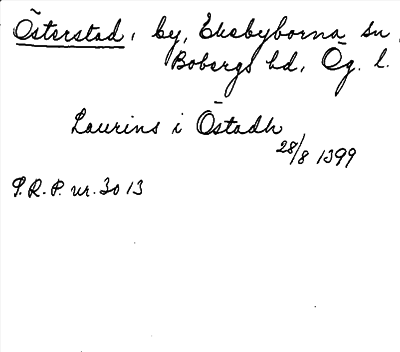 Österstad, by, Ekebyborna sn,
Bobergs hd, Ög. l.
Laurins i Östadh
28/8 1399
S.R.P. nr. 3013